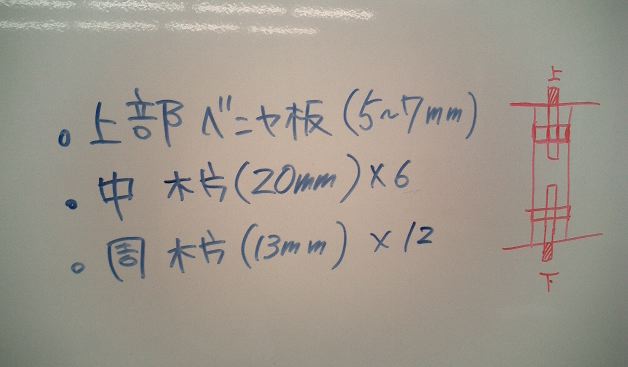 ・上部ベニヤ板(5~7mm)
・中 木片(20mm)×6
・周 木片(13mm)×12
上
下